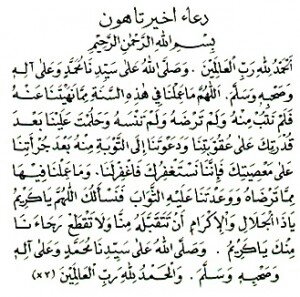 دعاء اخير تاهون
بِسْمِ اللهِ الرَّحْمٰنِ الرَّحِيْمِ
اَلْحَمْدُ لِلهِ رَبِّ الْعَالَمِيْنَ . وَصَلَّى اللهُ عَلَى سَيِّدِنَا مُحَمَّدٍ وَعَلَى اٰلِهِ
وَصَحْبِهِ وَسَلَّمَ . اَللّٰهُمَّ مَا عَمِلْنَا فِي هٰذِهِ السَّنَةِ مِمَّا نَهَيْتَنَا عَنْهُ
فَلَمْ نَتُبْ مِنْهُ وَلَمْ تَرْضَهُ وَلَمْ تَنْسَهُ وَحَلُمْتَ عَلَيْنَا بَعْدَ
قُدْرَتِكَ عَلَى عُقُوْبَتِنَا وَدَعَوْتَنَا اِلَى التَّوْبَةِ مِنْهُ بَعْدَ جُرْأَتِنَا
عَلَى مَعْصِيَتِكَ فَاِنَّا نَسْتَغْفِرُكَ فَاغْفِرْلَنَا . وَمَا عَمِلْنَا فِيْهَا
مِمَّا تَرْضَاهُ وَوَعَدْتَنَا عَلَيْهِ الثَّوَابَ فَنَسْأَلُكَ اللّٰهُمَّ يَاكَرِيْمُ
يَاذَا الْجَلَالِ وَالْاِكْرَامِ اَنْ تَتَقَبَّلَهُ مِنَّا وَلَا تَقْطَعْ رَجَاءَنَا
مِنْكَ يَاكَرِيْمُ . وَصَلَّى اللهُ عَلَى سَيِّدِنَا مُحَمَّدٍ وَعَلَى اٰلِهِ
وَصَحْبِهِ وَسَلَّمَ . وَالْحَمْدُ لِلهِ رَبِّ الْعَالَمِيْنَ (×٣)